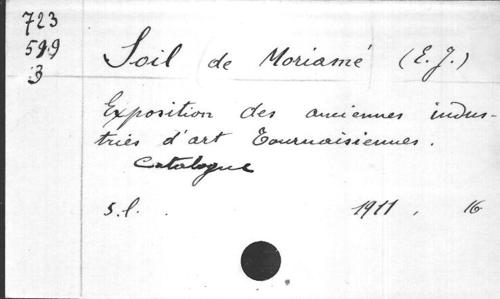 723
599
3
Soil de Moriamé (E. J.)
Exposition des anciennes indus-
tries d'art Tournaisiennes.
Catalogue
s. l. 1911. 16